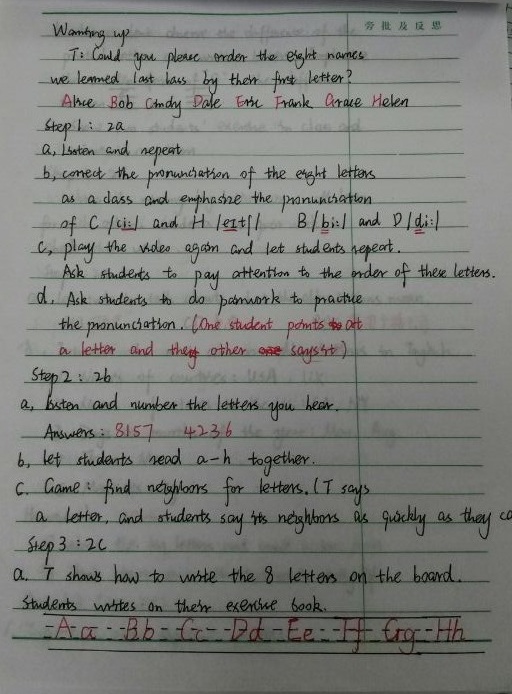 旁批及反思
Warming up
T: Could you please order the eight names
we learned last lass by their first letter?
Alice Bob Cindy Dale Eric Frank Grace Helen
Step 1: 2a
a, listen and repeat
b, correct the pronunciation of the eight letters
as a class and emphasize the pronunciation
of C /ci:/ and H /eɪtʃ/ B /bi:/ and D /di:/
c, play the video again and let students repeat.
Ask students to pay attention to the order of these letters.
d. Ask students to do pairwork to practice
the pronunciation. (One student points at
a letter and the other says it)
Step 2: 2b
a, listen and number the letters you hear.
Answers: 8157 4236
b, let students read a-h together.
c. Game: find neighbors for letters. (T says
a letter, and students say its neighbors as quickly as they ca
Step 3: 2c
a. T shows how to write the 8 letters on the board.
Students writes on their exercise book.
Aa Bb Cc Dd Ee Ff Gg Hh